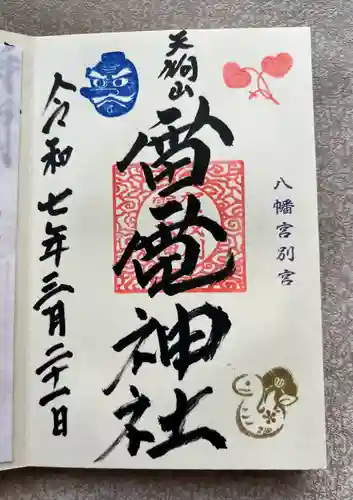 八幡宮別宮
天狗山
雷電神社
令和七年三月二十一日